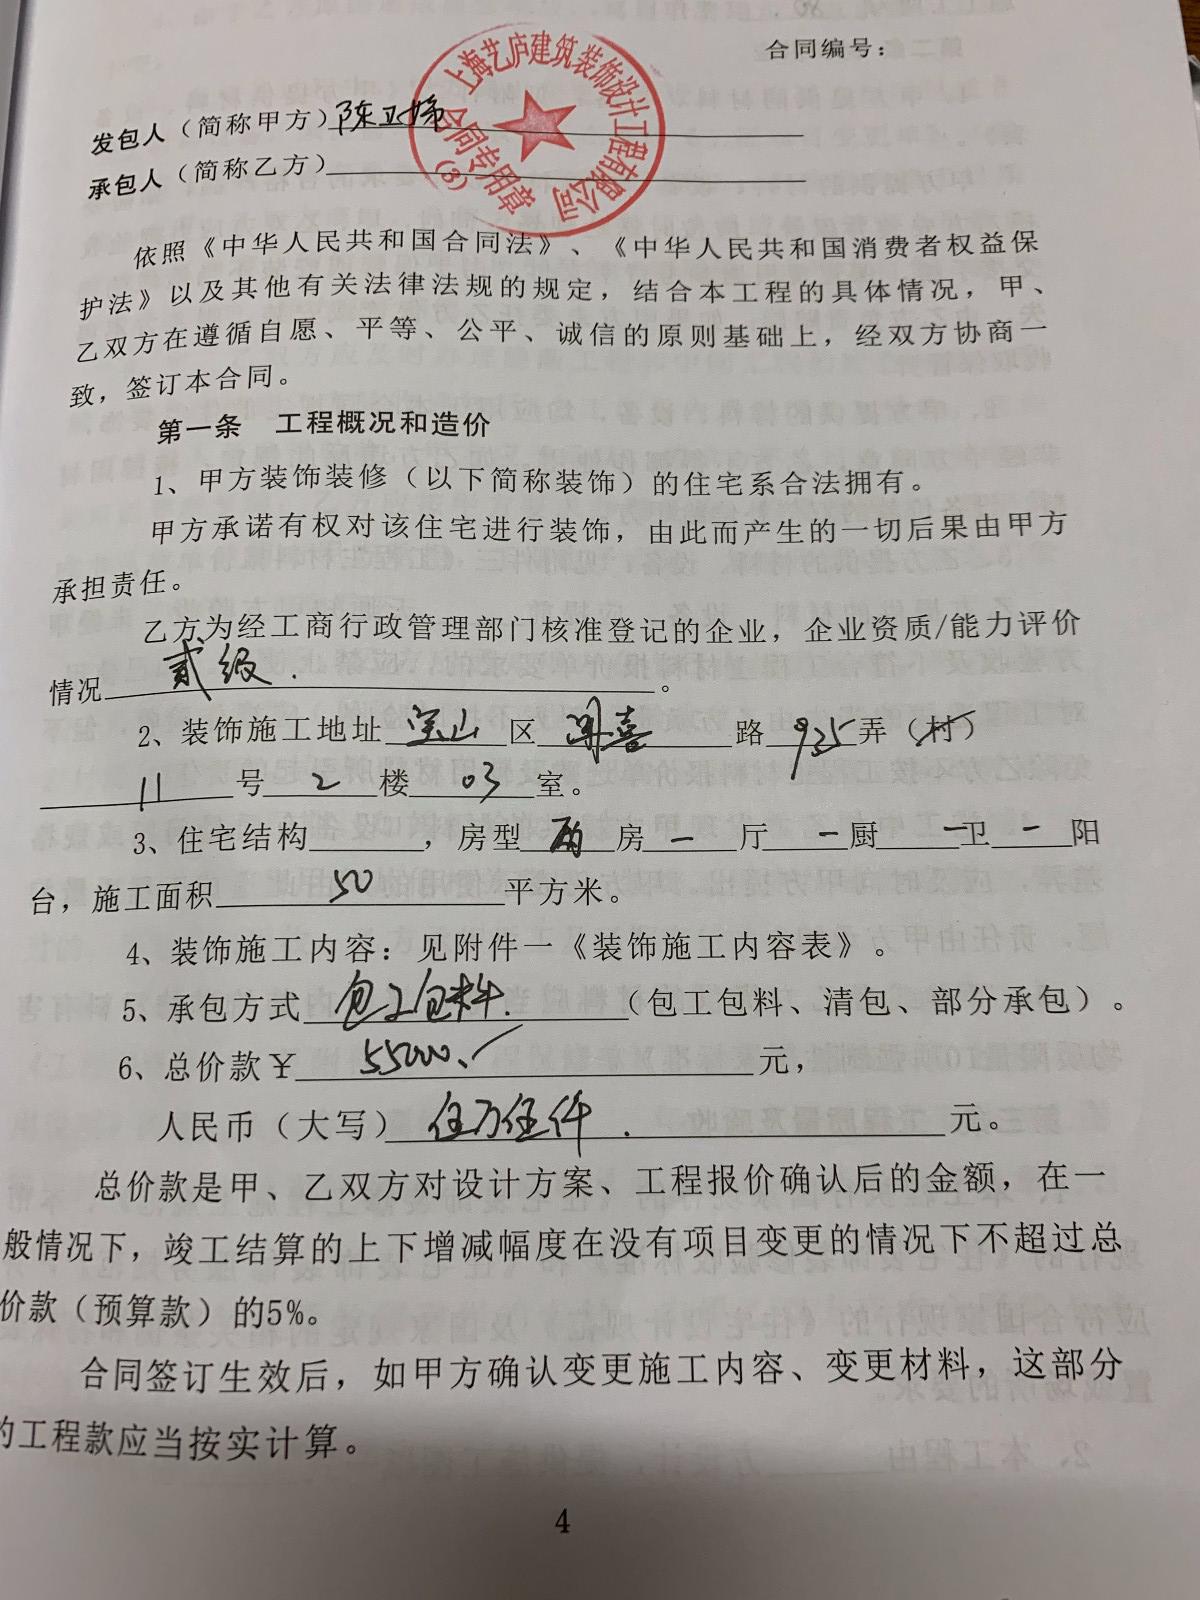 合同编号：
上海艺庐建筑装饰设计工程有限公司
合同专用章
(3)
发包人（简称甲方）陈卫娣
承包人（简称乙方）
依照《中华人民共和国合同法》、《中华人民共和国消费者权益保
护法》以及其他有关法律法规的规定，结合本工程的具体情况，甲、
乙双方在遵循自愿、平等、公平、诚信的原则基础上，经双方协商一
致，签订本合同。
第一条 工程概况和造价
1、甲方装饰装修（以下简称装饰）的住宅系合法拥有。
甲方承诺有权对该住宅进行装饰，由此而产生的一切后果由甲方
承担责任。
乙方为经工商行政管理部门核准登记的企业，企业资质/能力评价
情况 贰级. 。
2、装饰施工地址 宝山 区 闻喜 路 925 弄（村）
11 号 2 楼 03 室。
3、住宅结构 ，房型 两 房 一 厅 一 厨 一 卫 一 阳
台，施工面积 50 平方米。
4、装饰施工内容：见附件一《装饰施工内容表》。
5、承包方式 包工包料. （包工包料、清包、部分承包）。
6、总价款￥ 55000. 元，
人民币（大写） 伍万伍仟. 元。
总价款是甲、乙双方对设计方案、工程报价确认后的金额，在一
般情况下，竣工结算的上下增减幅度在没有项目变更的情况下不超过总
价款（预算款）的5%。
合同签订生效后，如甲方确认变更施工内容、变更材料，这部分
的工程款应当按实计算。
4